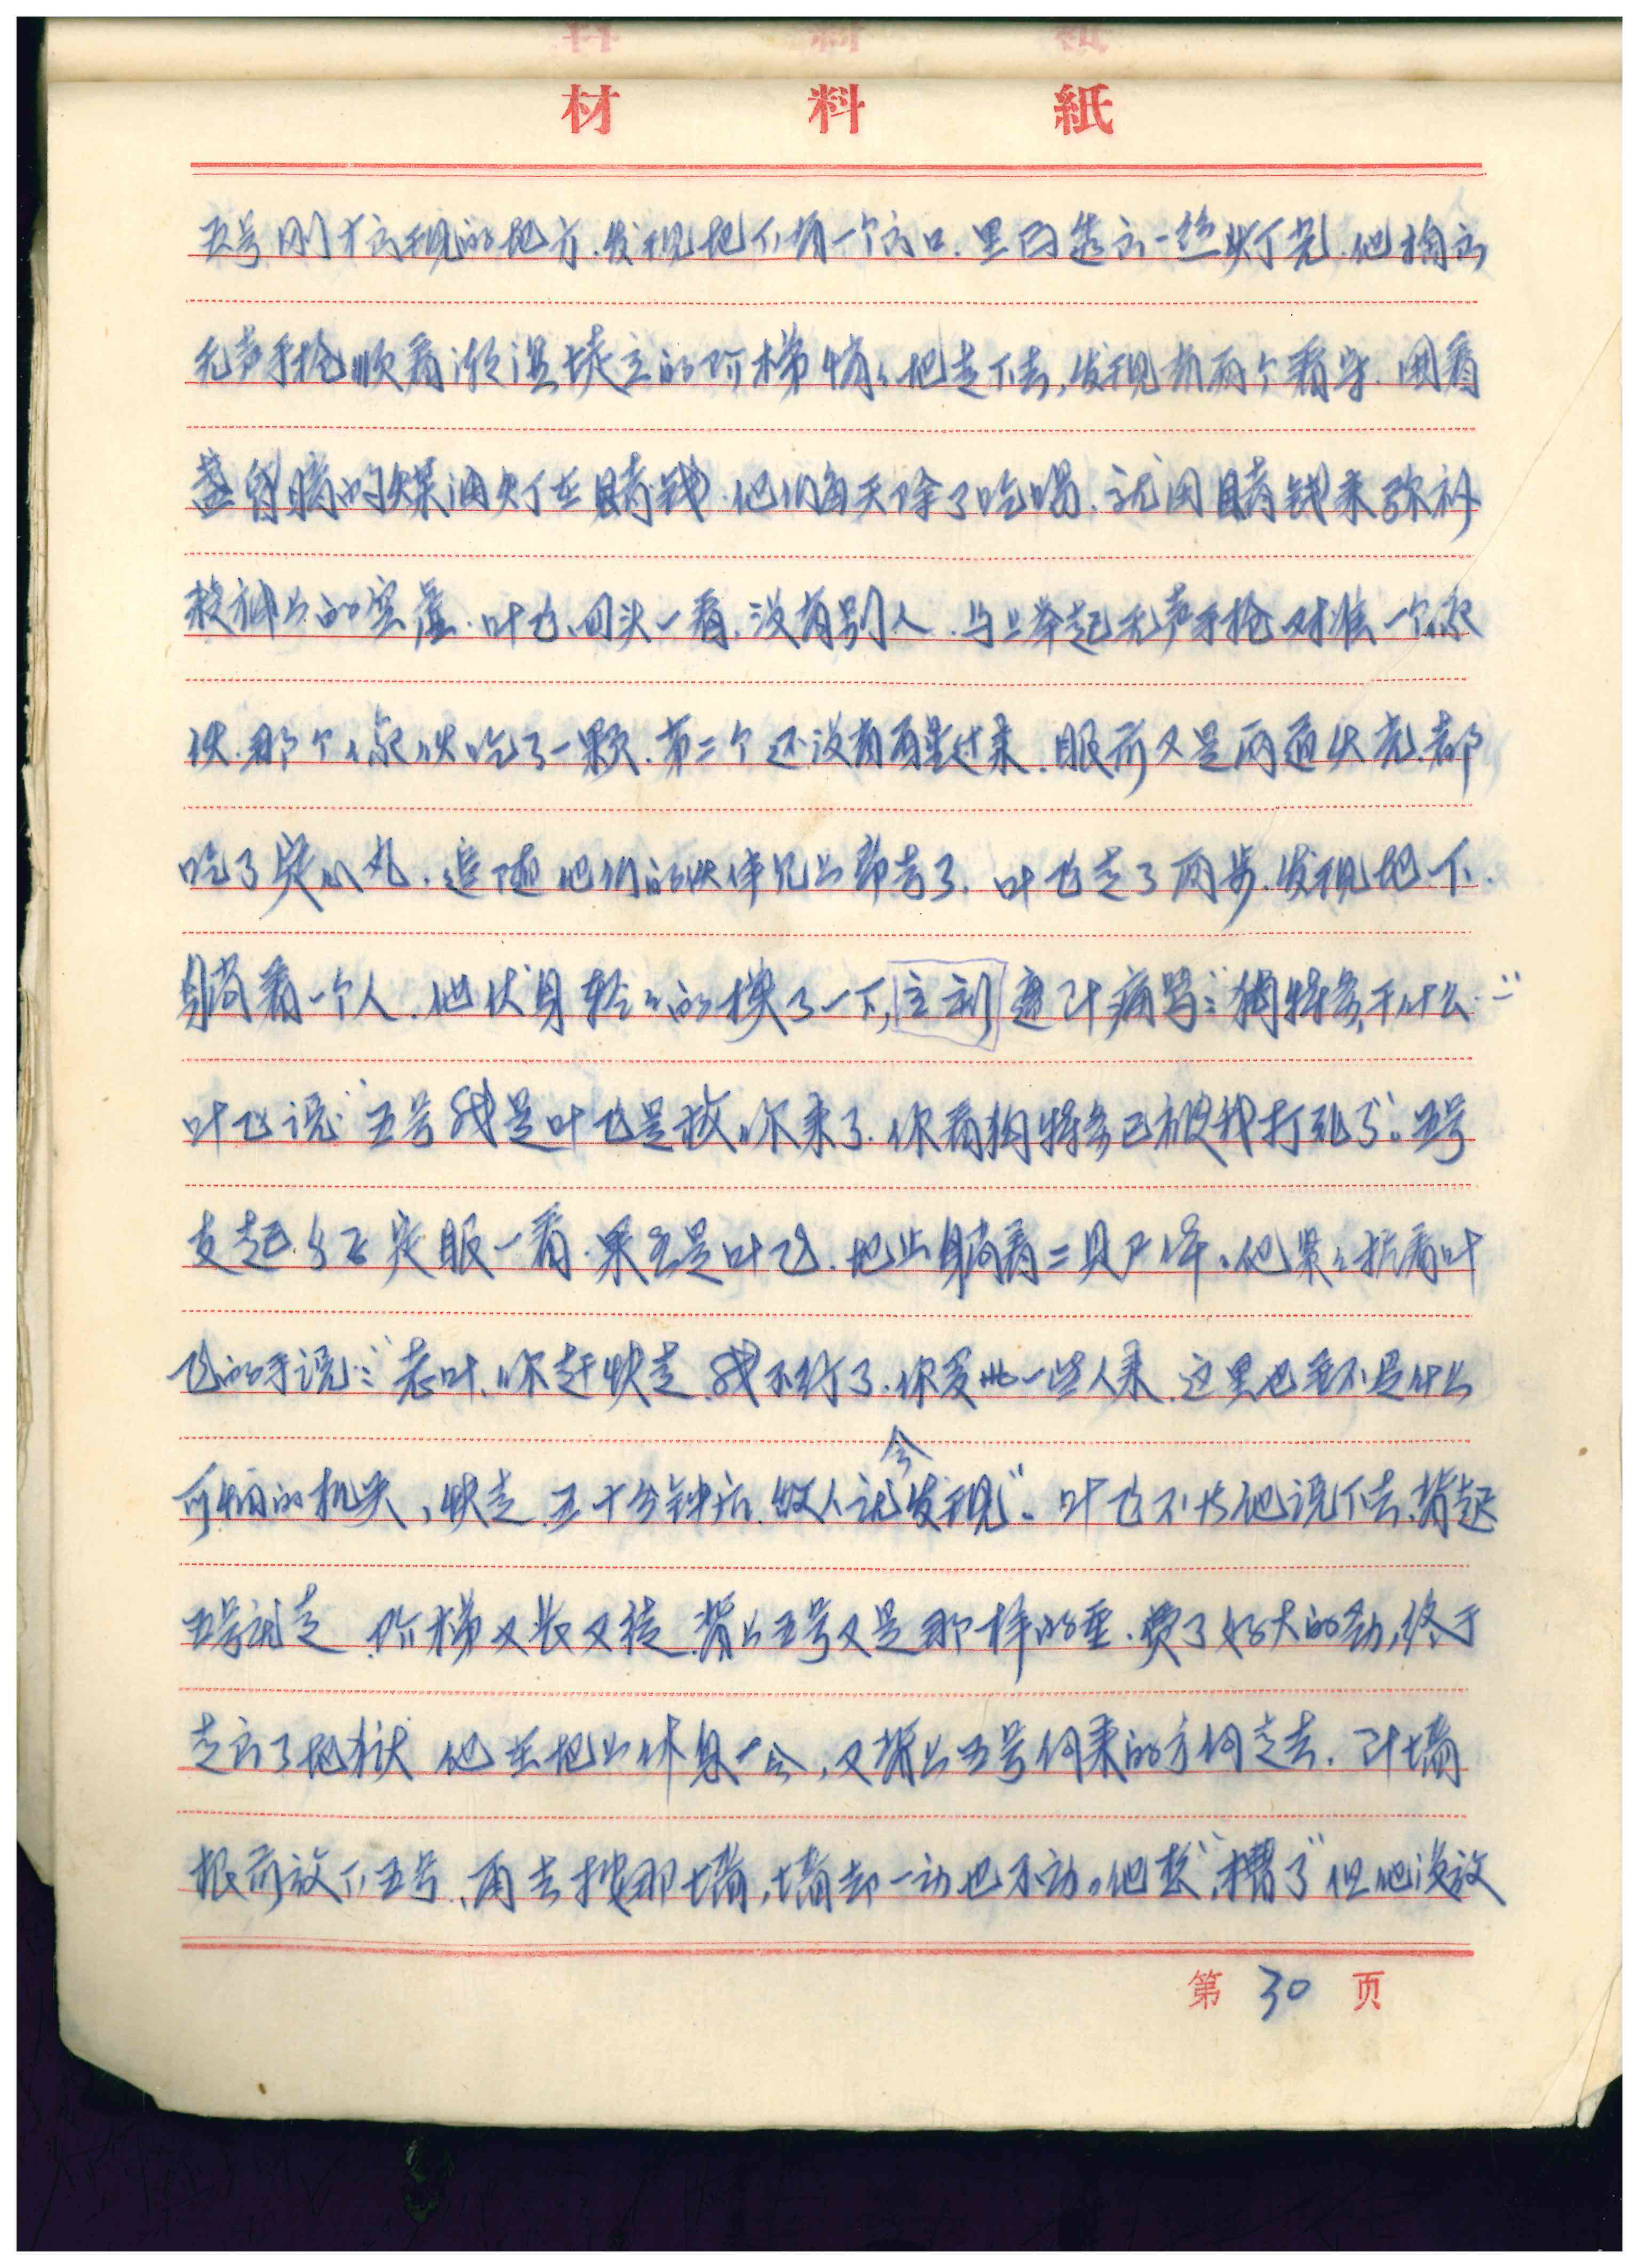 材料紙
五号刚才出现的地方.发现地下有一个出口.里面透出一丝灯光.他掏出
无声手枪顺着潮湿陡立的阶梯悄々地走下去,发现有两个看守.围着
盏昏暗的煤油灯在赌钱.他们每天除了吃喝.就用赌钱来弥补
精神上的空虚.叶飞回头一看.没有别人.马上举起无声手枪对准一个家
伙.那个家伙吃了一颗.第二个还没有再醒过来.眼前又是两道火光.都
吃了定心丸.追随他们的伙伴兄上帝去了.叶飞走了两步.发现地下.
躺着一个人.他伏身轻々的摸了一下,立刻遭到痛骂:"狗特务,干什么…"
叶飞说:"五号我是叶飞是救你来了.你看狗特务已被我打死了"。五号
支起身子定眼一看.果然是叶飞.地上躺着二具尸体。他紧々抓着叶
飞的手说:"老叶.你赶快走.我不行了.你多 一些人来.这里也重不是什么
可怕的机关,快走.五十分钟后.敌人就会发现"。叶飞不 他说下去.背起
五号就走.阶梯又长又陡.背上五号又是那样的重.费了好大的劲,终于
走出了地狱 他在地上休息一会,又背上五号向来的方向走去.到墙
根前放下五号,再去摸那墙,墙却一动也不动。他想"糟了"但他没放
第30页